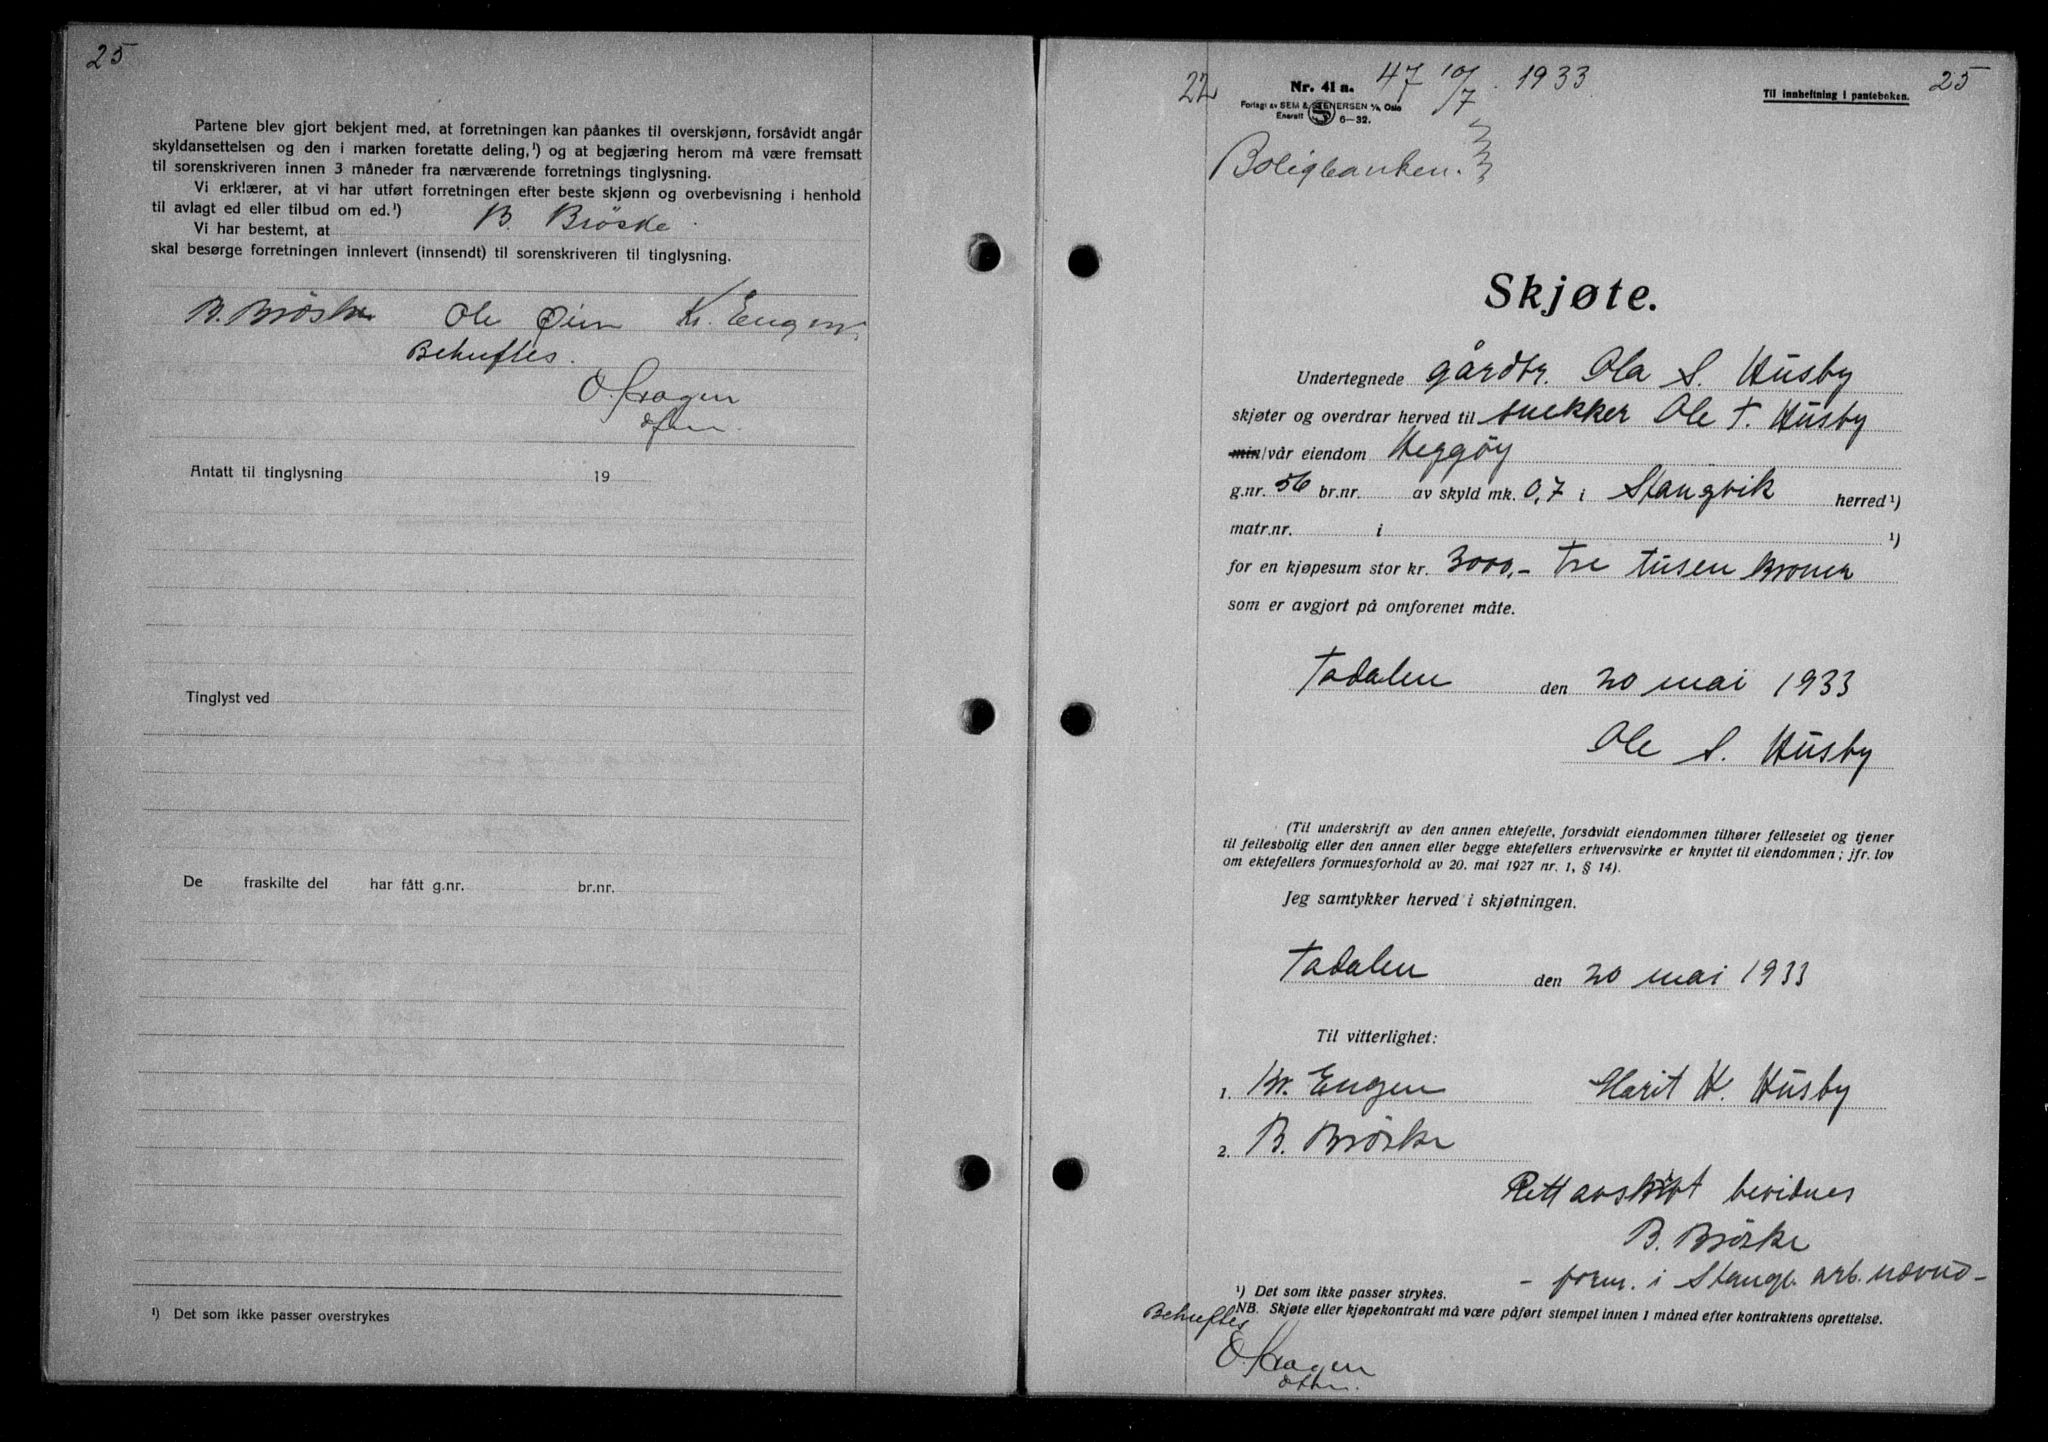 25
Partene blev gjort bekjent med, at forretningen kan påankes til overskjønn, forsåvidt angår
skyldansettelsen og den i marken foretatte deling,¹) og at begjæring herom må være fremsatt
til sorenskriveren innen 3 måneder fra nærværende forretnings tinglysning.
Vi erklærer, at vi har utført forretningen efter beste skjønn og overbevisning i henhold
til avlagt ed eller tilbud om ed.¹)
Vi har bestemt, at B. Brøske
skal besørge forretningen innlevert (innsendt) til sorenskriveren til tinglysning.
B. Brøske Ole Øien Kr. Engen
Behuftes.
O. Kragen
Antatt til tinglysning 19
Tinglyst ved
De fraskilte del har fått g.nr. br.nr.
¹) Det som ikke passer overstrykes
22 Nr. 41 a. 47 10/7 1933 Til innheftning i panteboken. 25
Forlagt av SEM & STENERSEN A/S, Oslo
Enerett 6–32.
Boligbanken.
Skjøte.
Undertegnede gårdbr. Ola S. Husby
skjøter og overdrar herved til snekker Ole T. Husby
min/vår eiendom Heggøy
g.nr. 56 br.nr. av skyld mk. 0,7 i Stangvik herred¹)
matr.nr. i ¹)
for en kjøpesum stor kr. 3000,- tre tusen kroner
som er avgjort på omforenet måte.
Todalen den 20 mai 1933
Ole S. Husby
(Til underskrift av den annen ektefelle, forsåvidt eiendommen tilhører felleseiet og tjener
til fellesbolig eller den annen eller begge ektefellers erhvervsvirke er knyttet til eiendommen; jfr. lov
om ektefellers formuesforhold av 20. mai 1927 nr. 1, § 14).
Jeg samtykker herved i skjøtningen.
Todalen den 20 mai 1933
Til vitterlighet:
1. Kr. Engen Marit H. Husby
2. B. Brøske
Rett avskrivt bevidnes
B. Brøske
- form. i Stangv. arb.nevnd -
¹) Det som ikke passer strykes.
NB. Skjøte eller kjøpekontrakt må være påført stempel innen 1 måned efter kontraktens oprettelse.
Behuftes
O. Kragen